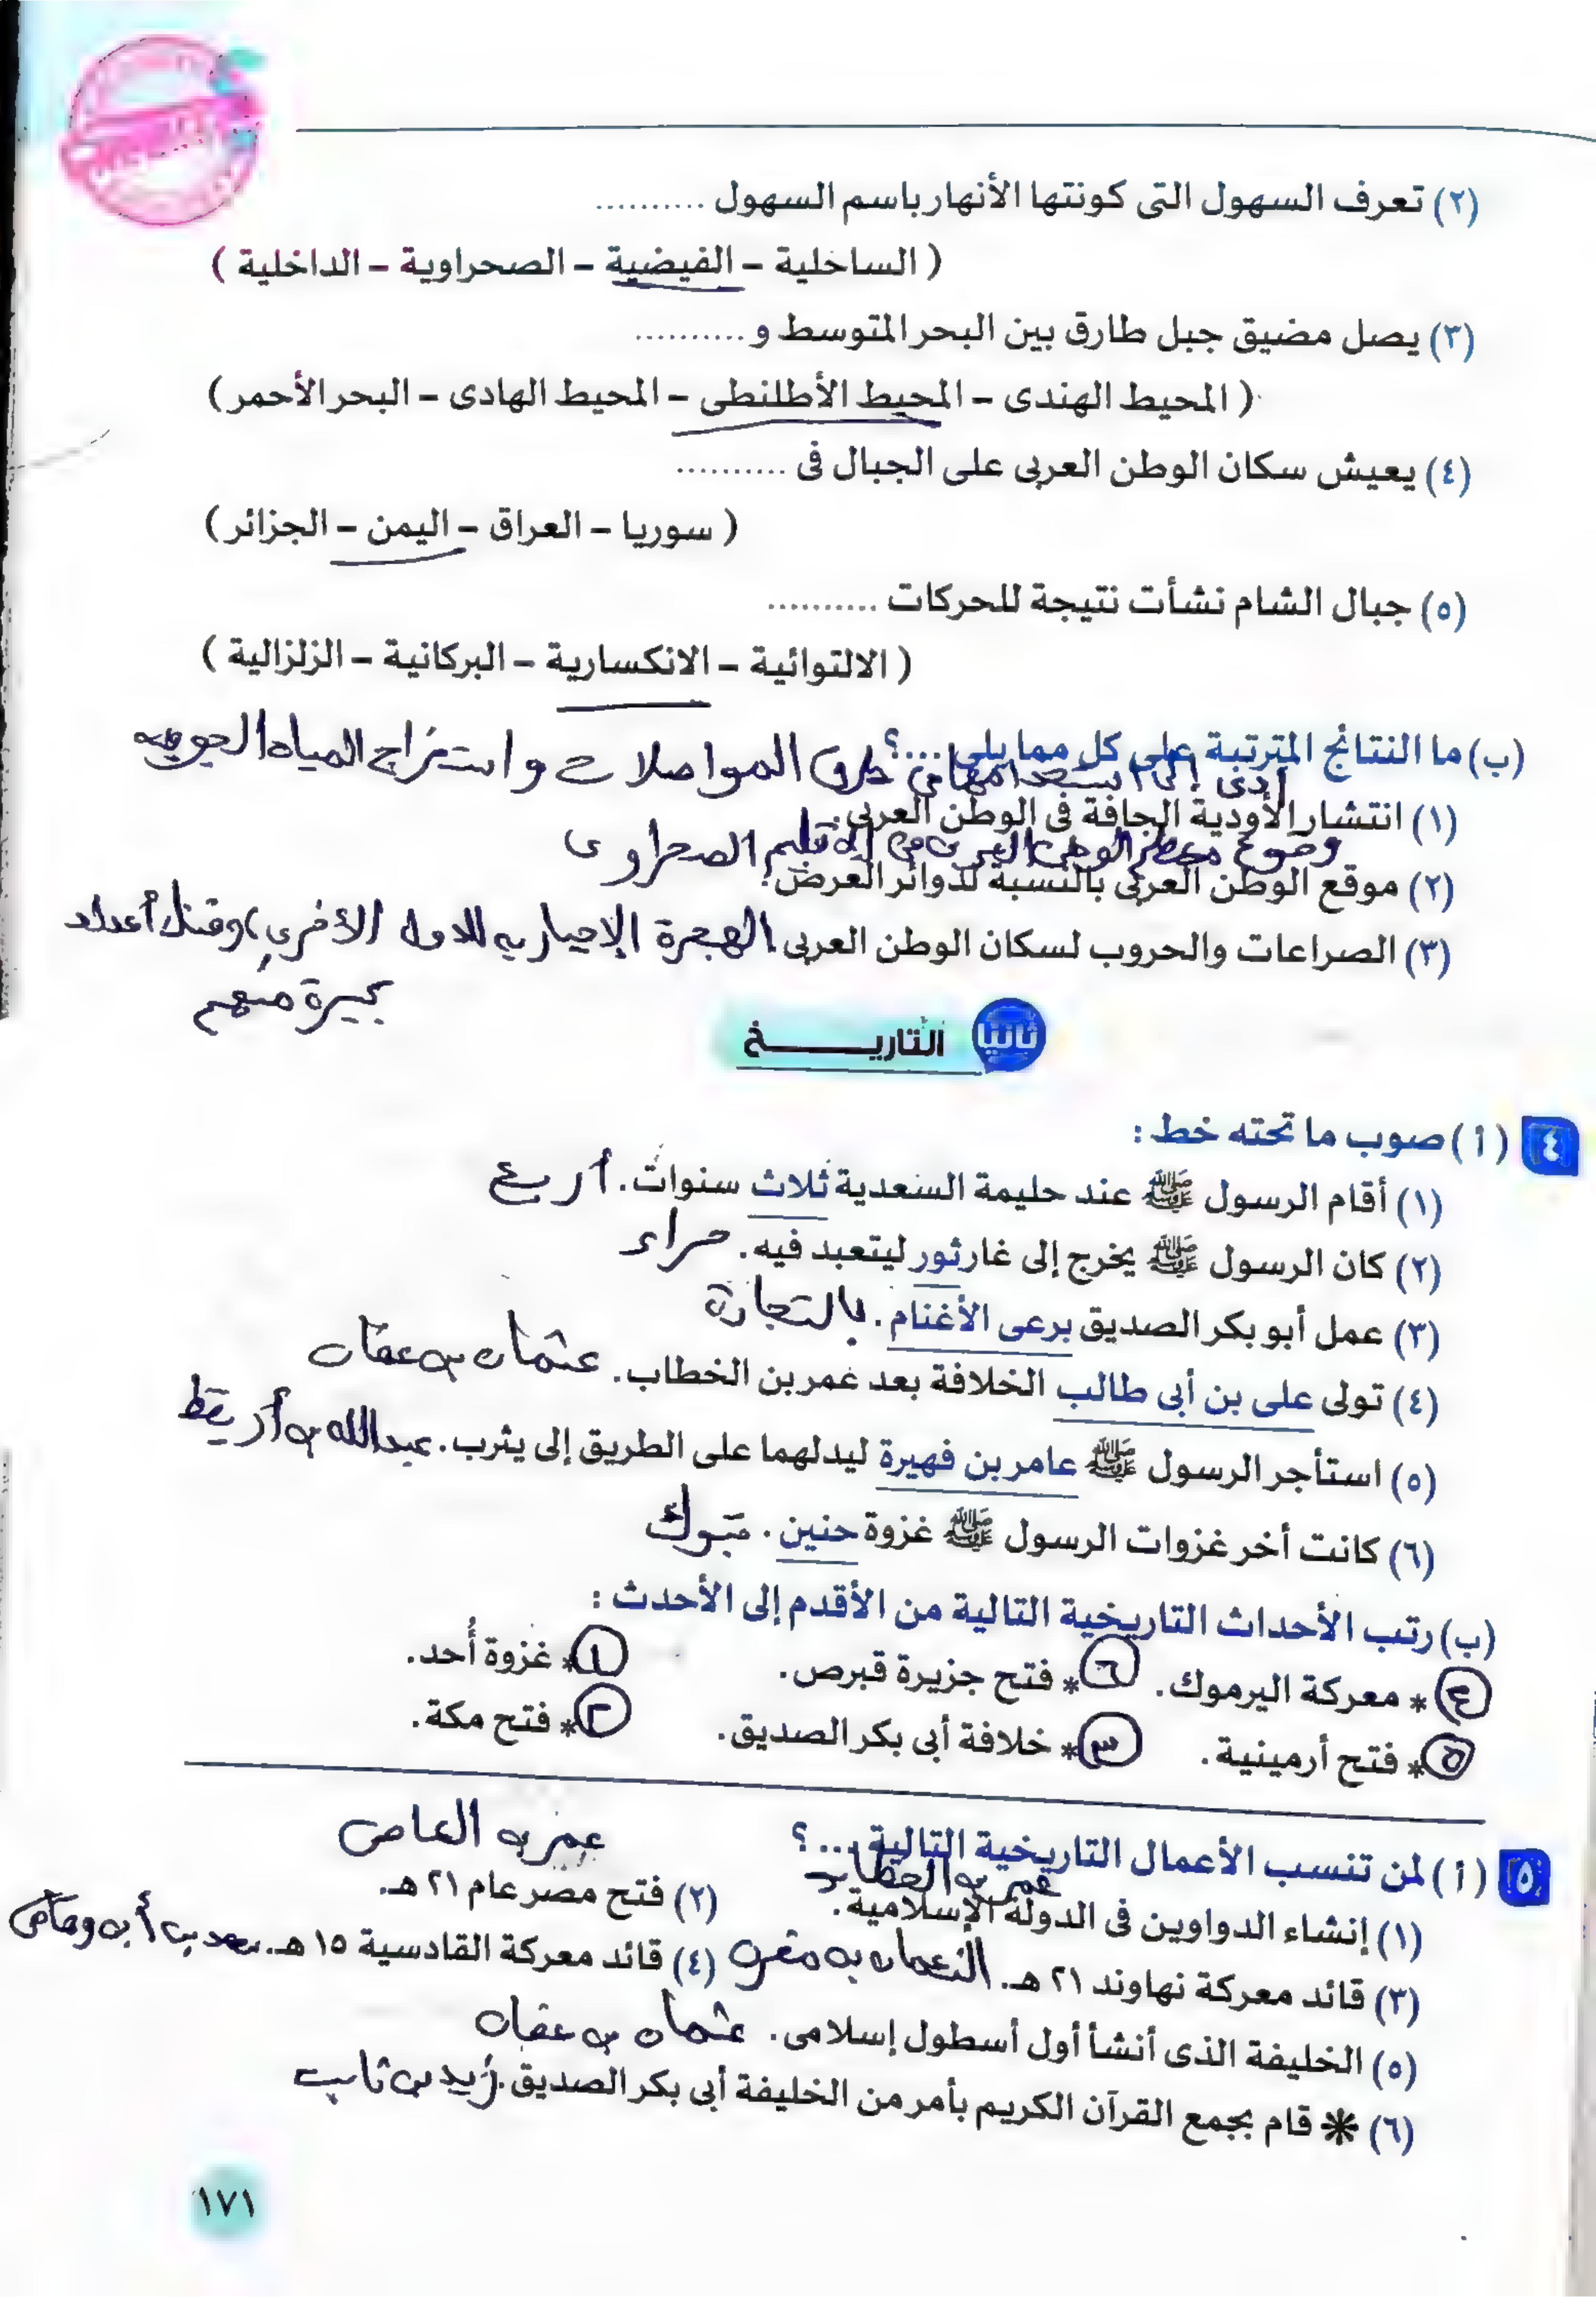 (٢) تعرف السهول التى كونتها الأنهار باسم السهول ..........
( الساحلية – الفيضية – الصحراوية – الداخلية )
(٣) يصل مضيق جبل طارق بين البحر المتوسط و ..........
( المحيط الهندى – المحيط الأطلنطى – المحيط الهادى – البحر الأحمر )
(٤) يعيش سكان الوطن العربى على الجبال فى ..........
( سوريا – العراق – اليمن – الجزائر )
(٥) جبال الشام نشأت نتيجة للحركات ..........
( الالتوائية – الانكسارية – البركانية – الزلزالية )
(ب) ما النتائج المترتبة على كل مما يلى ....؟
أدى إلى استخدامها فى طرق المواصلات واستخراج المياه الجوفيه
(١) انتشار الأودية الجافة فى الوطن العربى.
وقوع معظم الوطن العربى فى الإقليم الصحراوى
(٢) موقع الوطن العربى بالنسبة لدوائر العرض.
(٣) الصراعات والحروب لسكان الوطن العربى. الهجرة الإجباريه للدول الأخرى، وقتل أعداد
كبيرة منهم
ثانيًا التاريـــــخ
٤ (أ) صوب ما تحته خط :
(١) أقام الرسول ﷺ عند حليمة السعدية ثلاث سنوات. أربع
(٢) كان الرسول ﷺ يخرج إلى غار ثور ليتعبد فيه. حراء
(٣) عمل أبو بكر الصديق برعى الأغنام. بالتجارة
(٤) تولى على بن أبى طالب الخلافة بعد عمر بن الخطاب. عثمان بن عفان
(٥) استأجر الرسول ﷺ عامر بن فهيرة ليدلهما على الطريق إلى يثرب. عبدالله بن أريقط
(٦) كانت أخر غزوات الرسول ﷺ غزوة حنين. تبوك
(ب) رتب الأحداث التاريخية التالية من الأقدم إلى الأحدث :
٤ * معركة اليرموك. ٦ * فتح جزيرة قبرص. ١ * غزوة أُحد.
٥ * فتح أرمينية. ٣ * خلافة أبى بكر الصديق. ٢ * فتح مكة.
٥ (أ) لمن تنسب الأعمال التاريخية التالية ....؟ عمر بن العاص
(١) إنشاء الدواوين فى الدولة الإسلامية. عمر بن الخطاب (٢) فتح مصر عام ٢١ هـ.
(٣) قائد معركة نهاوند ٢١ هـ. النعمان بن مقرن (٤) قائد معركة القادسية ١٥ هـ. سعد بن أبى وقاص
(٥) الخليفة الذى أنشأ أول أسطول إسلامى. عثمان بن عفان
(٦) * قام بجمع القرآن الكريم بأمر من الخليفة أبى بكر الصديق. زيد بن ثابت
١٧١